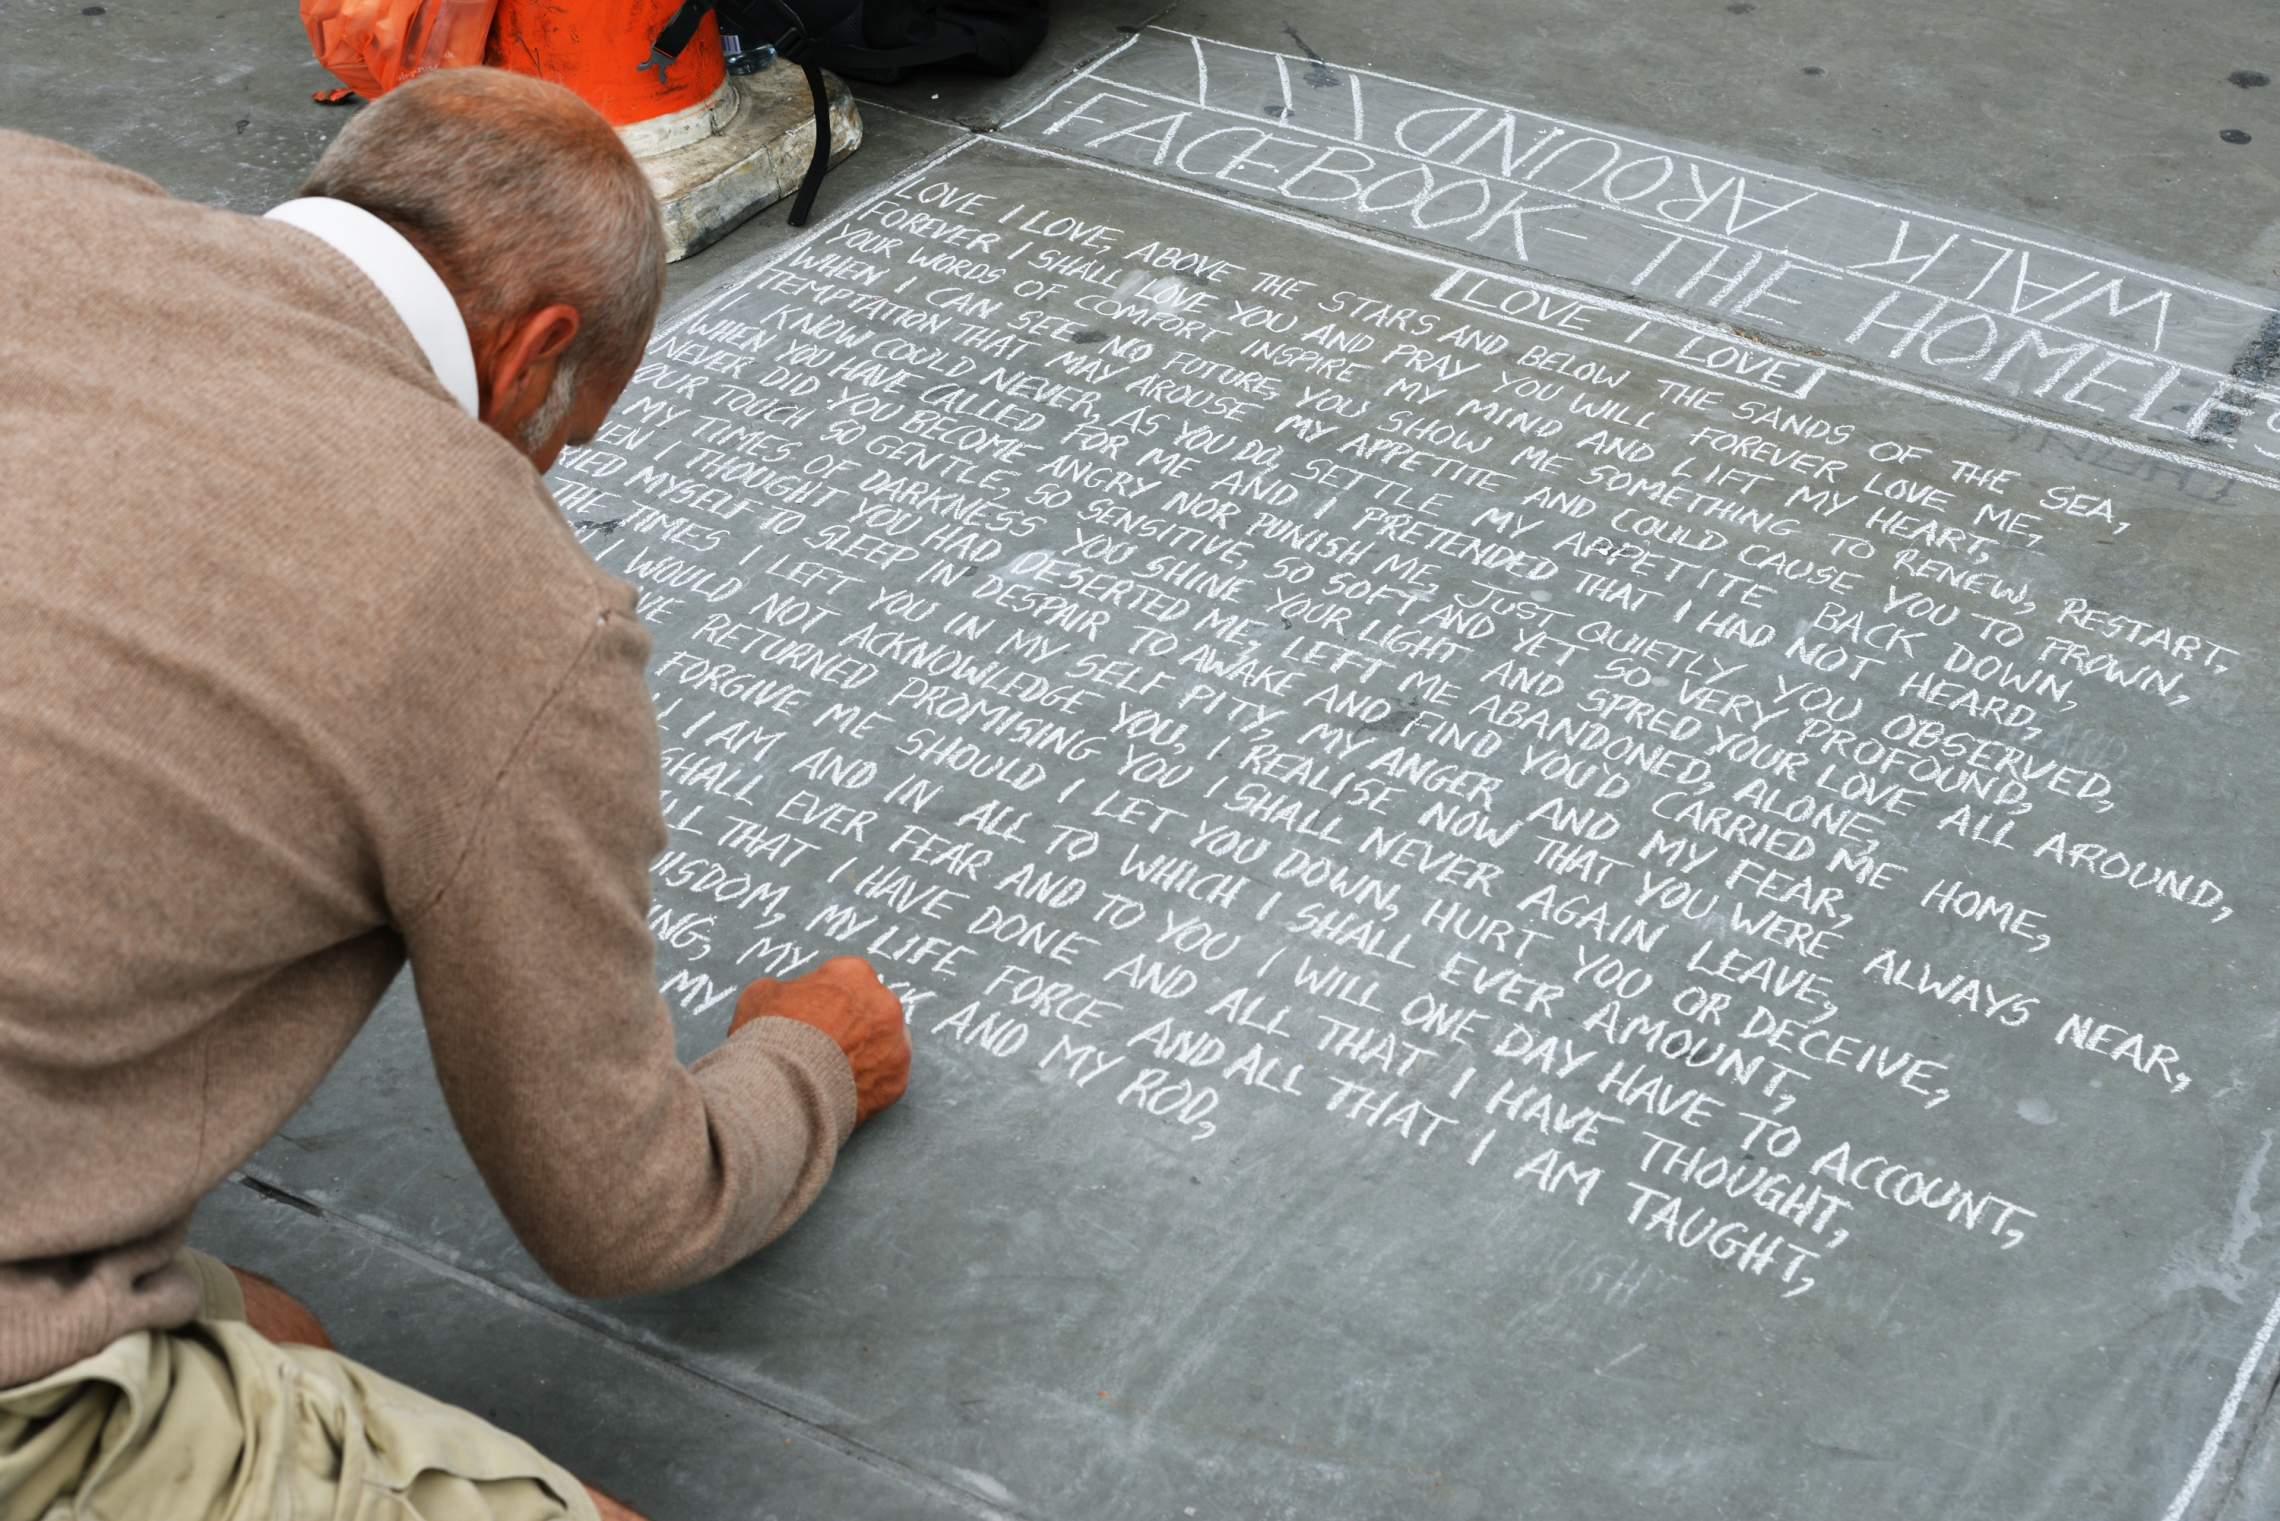 WALK AROUND
FACEBOOK - THE HOMELES
LOVE I LOVE
LOVE I LOVE, ABOVE THE STARS AND BELOW THE SANDS OF THE SEA,
FOREVER I SHALL LOVE YOU AND PRAY YOU WILL FOREVER LOVE ME,
YOUR WORDS OF COMFORT INSPIRE MY MIND AND LIFT MY HEART,
WHEN I CAN SEE NO FUTURE, YOU SHOW ME SOMETHING TO RENEW, RESTART,
TEMPTATION THAT MAY AROUSE MY APPETITE AND COULD CAUSE YOU TO FROWN,
I KNOW COULD NEVER, AS YOU DO, SETTLE MY APPETITE BACK DOWN,
WHEN YOU HAVE CALLED FOR ME AND I PRETENDED THAT I HAD NOT HEARD,
NEVER DID YOU BECOME ANGRY NOR PUNISH ME, JUST QUIETLY YOU OBSERVED,
YOUR TOUCH SO GENTLE, SO SENSITIVE, SO SOFT AND YET SO VERY PROFOUND,
MY TIMES OF DARKNESS YOU SHINE YOUR LIGHT AND SPRED YOUR LOVE ALL AROUND,
EN I THOUGHT YOU HAD DESERTED ME, LEFT ME ABANDONED, ALONE,
RIED MYSELF TO SLEEP IN DESPAIR TO AWAKE AND FIND YOU'D CARRIED ME HOME,
THE TIMES I LEFT YOU IN MY SELF PITY, MY ANGER AND MY FEAR,
I WOULD NOT ACKNOWLEDGE YOU, I REALISE NOW THAT YOU WERE ALWAYS NEAR,
VE RETURNED PROMISING YOU I SHALL NEVER AGAIN LEAVE,
FORGIVE ME SHOULD I LET YOU DOWN, HURT YOU OR DECEIVE,
I AM AND IN ALL TO WHICH I SHALL EVER AMOUNT,
SHALL EVER FEAR AND TO YOU I WILL ONE DAY HAVE TO ACCOUNT,
LL THAT I HAVE DONE AND ALL THAT I HAVE THOUGHT,
ISDOM, MY LIFE FORCE AND ALL THAT I AM TAUGHT,
ING, MY CK AND MY ROD,
MY